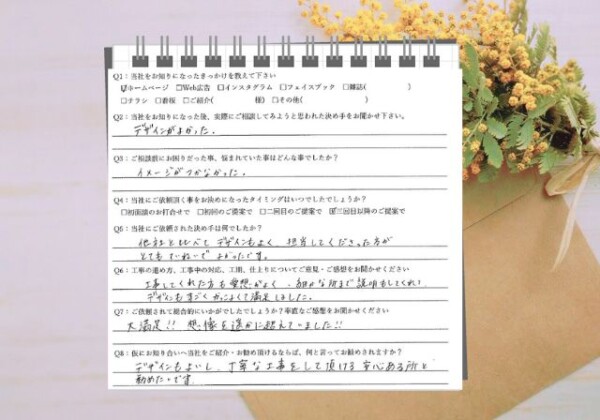 Q1：当社をお知りになったきっかけを教えて下さい
☑ホームページ □Web広告 □インスタグラム □フェイスブック □雑誌( )
□チラシ □看板 □ご紹介( 様) □その他( )
Q2：当社をお知りになった後、実際にご相談してみようと思われた決め手をお聞かせ下さい。
デザインがよかった。
Q3：ご相談前にお困りだった事、悩まれていた事はどんな事でしたか？
イメージがつかなかった。
Q4：当社にご依頼頂く事をお決めになったタイミングはいつでしたでしょうか？
□初面談のお打合せで □初回のご提案で □二回目のご提案で ☑三回目以降のご提案で
Q5：当社にご依頼された決め手は何でしたか？
他社と比べて デザインもよく、担当してくださった方が
とても ていねいで よかったです。
Q6：工事の進め方、工事中の対応、工期、仕上りについてご意見・ご感想をお聞かせください
工事してくれた方も愛想がよく、細かな所まで説明もしてくれ、
デザインもすごくかっこよくて満足しました。
Q7：ご依頼されて総合的にいかがでしたでしょうか？率直なご感想をお聞かせください
大満足!! 想像を遥かに超えていました!!
Q8：仮にお知り合いへ当社をご紹介・お勧め頂けるならば、何と言ってお勧めされますか？
デザインもよいし、丁寧な工事をして頂ける 安心ある所と
勧めたいです